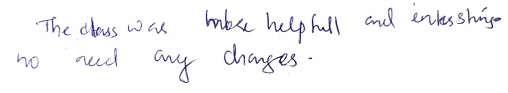 The class was helpfull and intresting
no need any changes.